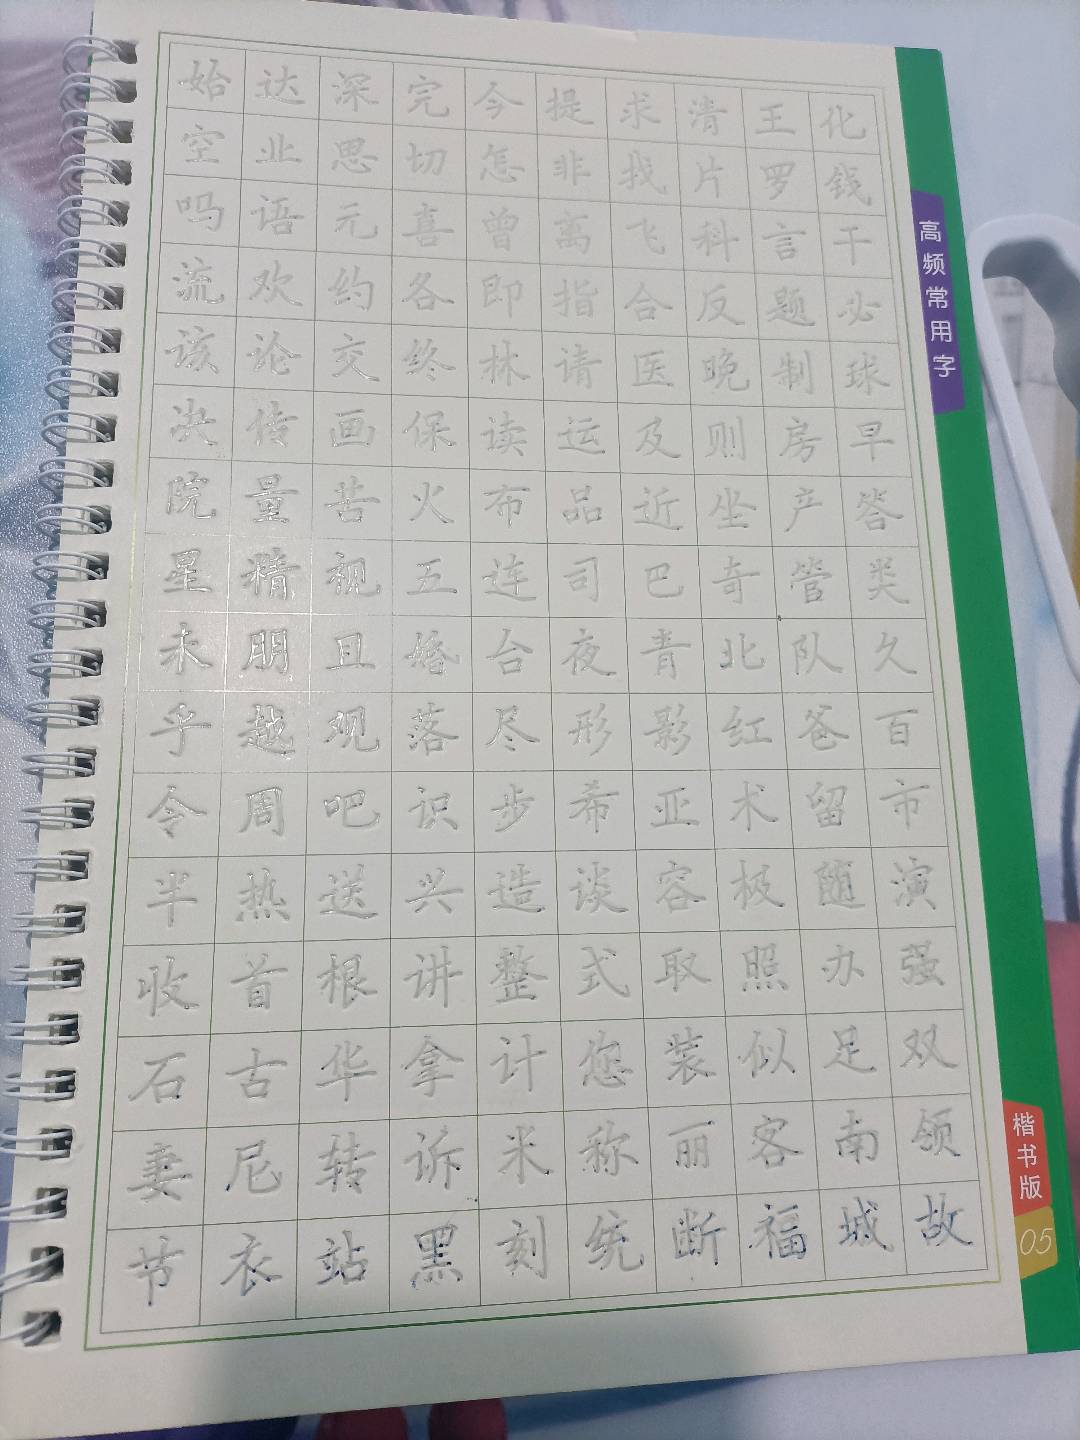 始达深完今提求清王化
空业思切怎非找片罗钱
吗语元喜曾离飞科言干
流欢约各即指合反题必
该论交终林请医晚制球
决传画保读运及则房早
院量苦火布品近坐产答
星精视五连司巴奇管类
未朋且婚台夜青北队久
乎越观落尽形影红爸百
令周吧识步希亚术留市
半热送兴造谈容极随演
收首根讲整式取照办强
石古华拿计您装似足双
妻尼转诉米称丽客南领
节衣站黑刻统断福城故
高频常用字
楷书版
05